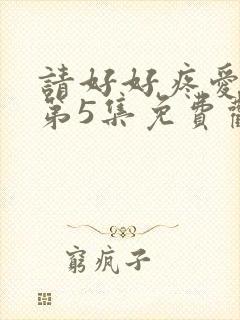 請好好疼愛
第5集免費
窮疯子